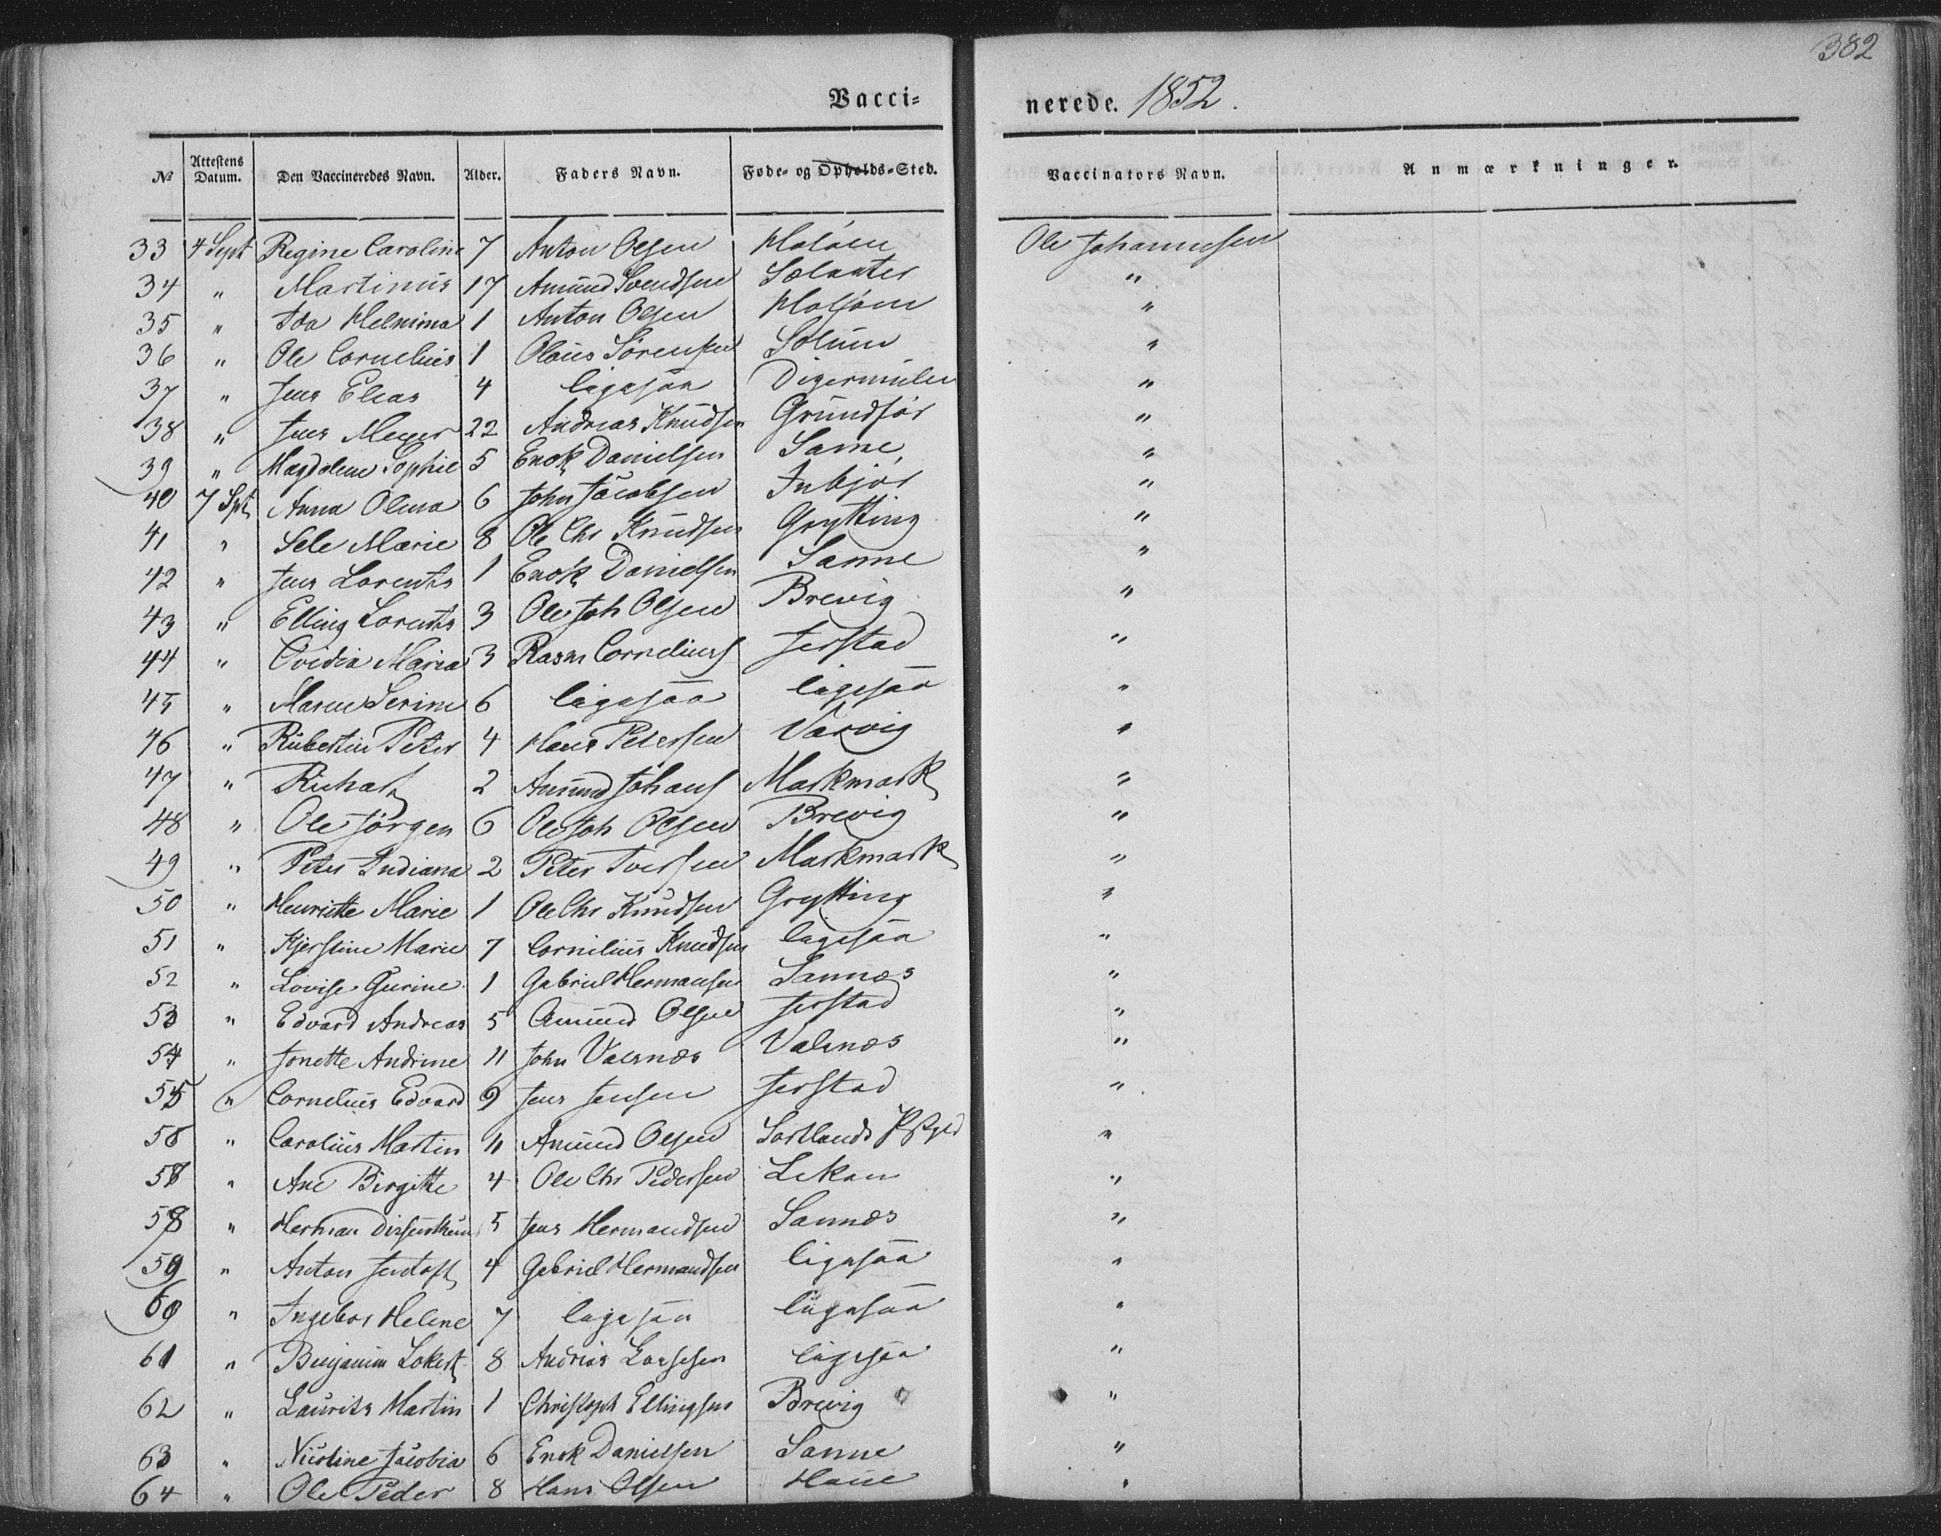 382
Vacci- nerede. 1852.
No Attestens Datum. Den Vaccineredes Navn. Alder. Faders Navn. Føde- og Opholds-Sted. Vaccinators Navn. Anmærkninger.
33 4 Sept Regine Caroline 7 Anton Olsen Holsøen Ole Johannesen
34 " Martinus 17 Amund Svendsen "
35 " Ida Helmima 1 Anton Olsen "
36 " Ole Cornelius 1 Olaus Sørensen Solum "
37 " Jens Elias 4 ligesaa Digermulen "
38 " Jens Meyer 22 Andreas Knudsen Grundfør "
39 " Magdolene Sophie 5 Enok Danielsen Sanne, "
40 7 Spt Anna Olena 6 John Jacobsen "
41 " Sele Marie 8 Ole Chr Knudsen Grytting "
42 " Jens Lorents 1 Enok Danielsen Sanne "
43 " Elling Lorents 3 Ole Joh Olsen Brevig "
44 " Ovidia Maria 3 Rasm Corneliuss Jerstad "
45 " Maren Serine 6 ligesaa ligesaa "
46 " Rubertin Peter 4 Hans Petersen Varvig "
47 " Richart 2 Amund Johans Markmark "
48 " Ole Jørgen 6 Ole Joh Olsen Brevig "
49 " Peter Indiana 2 Peter Iversen Markmark "
50 " Henriette Marie 1 Ole Chr Knudsen Grytting "
51 " Kjerstine Marie 7 Cornilius Knudsen ligesaa "
52 " Lovise Gurine 1 Gabriel Hermansen Sannæs "
53 " Edvard Andreas 5 Amund Olsen Jerstad "
54 " Jonette Andrine 11 John Valsnæs Valsnæs "
55 " Cornelius Edvard 9 Jens Jensen Jerstad "
56 " Carolius Martin 11 Amund Olsen Sortlands "
57 " Ane Birgitte 4 Ole Chr Pedersen Lekan "
58 " Herman 5 Jens Hermandsen Sannæs "
59 " Anton Jentoft 4 Gabriel Hermandsen ligesaa "
60 " Ingebor Helene 7 ligesaa ligesaa "
61 " Benjamin Lokert 8 Andrias Larssen ligesaa "
62 " Laurits Martin 1 Christoph Ellingsen Brevig "
63 " Nicoline Jacobia 6 Enok Danielsen Sanne "
64 " Ole Peder 8 Hans Olsen "